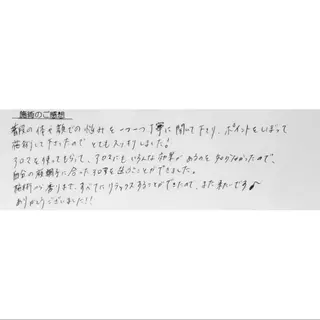 施術のご感想
普段の体や顔での悩みを一つ一つ丁寧に聞いて下さり、ポイントをしぼって
施術して下さったので とても スッキリしました!
アロマを使ってもらって、アロマにも いろんな効果が あるのを 知らなかったので、
自分の 体調に 合った アロマを 選ぶことが できました。
施術から 香りまで、すべてに リラックスすることが できたので、また 来たいです
ありがとうございました!!